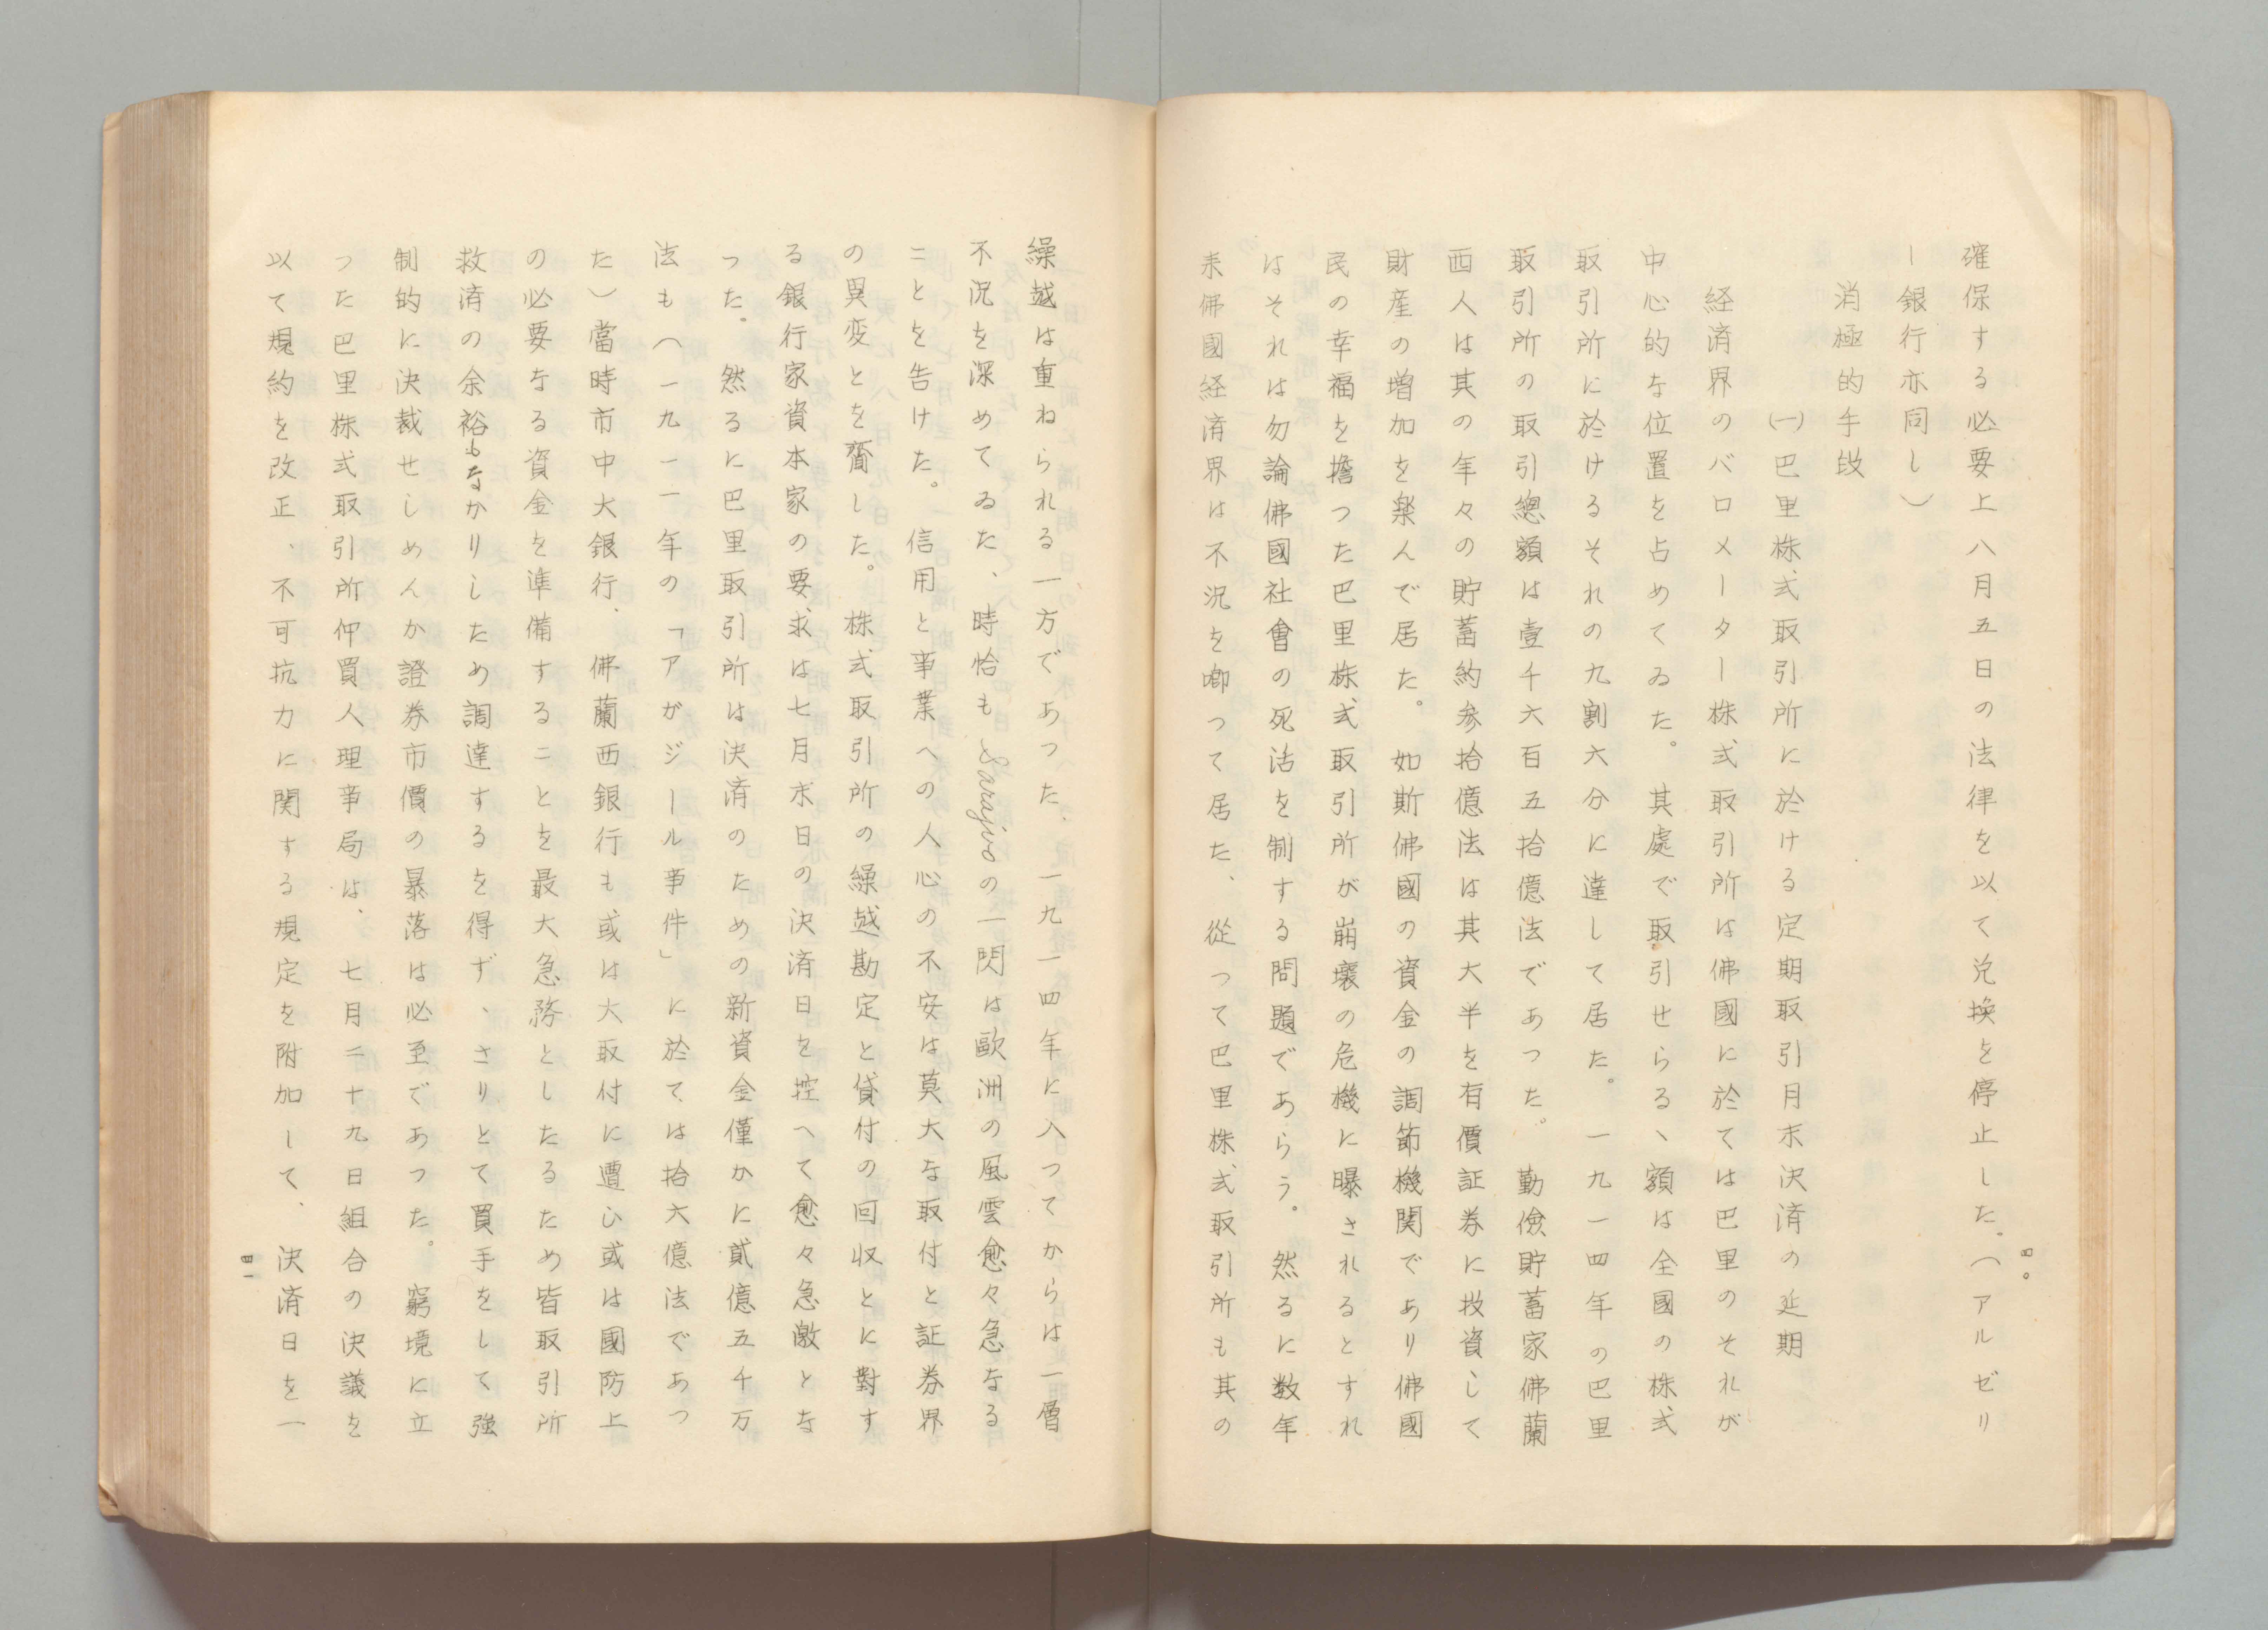 確保する必要上八月五日の法律を以て兌換を停止した。(アルゼリ
ー銀行亦同し)
消極的手段
(一)巴里株式取引所に於ける定期取引月末決済の延期
経済界のバロメーター株式取引所は佛國に於ては巴里のそれが
中心的な位置を占めてゐた。其處で取引せらるゝ額は全國の株式
取引所に於けるそれの九割六分に達して居た。一九一四年の巴里
取引所の取引總額は壹千六百五拾億法であつた。勤儉貯蓄家佛蘭
西人は其の年々の貯蓄約参拾億法は其大半を有價証券に投資して
財産の増加を楽んで居た。如斯佛國の資金の調節機関であり佛國
民の幸福を擔つた巴里株式取引所が崩壊の危機に曝されるとすれ
はそれは勿論佛國社會の死活を制する問題であらう。然るに数年
来佛國経済界は不況を喞つて居た、從つて巴里株式取引所も其の
四〇
繰越は重ねられる一方であつた、一九一四年に入つてからは一層
不況を深めてゐた、時恰もとSarajivoの一閃は歐洲の風雲愈々急なる
ことを告けた。信用と事業への人心の不安は莫大な取付と証券界
の異変とを齎した。株式取引所の繰越勘定と貸付の回収とに對す
る銀行家資本家の要求は七月末日の決済日を控へて愈々急激とな
つた。然るに巴里取引所は決済のための新資金僅かに貳億五千万
法も(一九一一年の「アガジール事件」に於ては拾六億法であつ
た)當時市中大銀行、佛蘭西銀行も或は大取付に遭ひ或は國防上
の必要なる資金を準備することを最大急務としたるため皆取引所
救済の余裕もなかりしため調達するを得ず、さりとて買手をして強
制的に決裁せしめんか證券市價の暴落は必至であつた。窮境に立
つた巴里株式取引所仲買人理事局は、七月二十九日組合の決議を
以て規約を改正、不可抗力に関する規定を附加して、決済日を一
四一